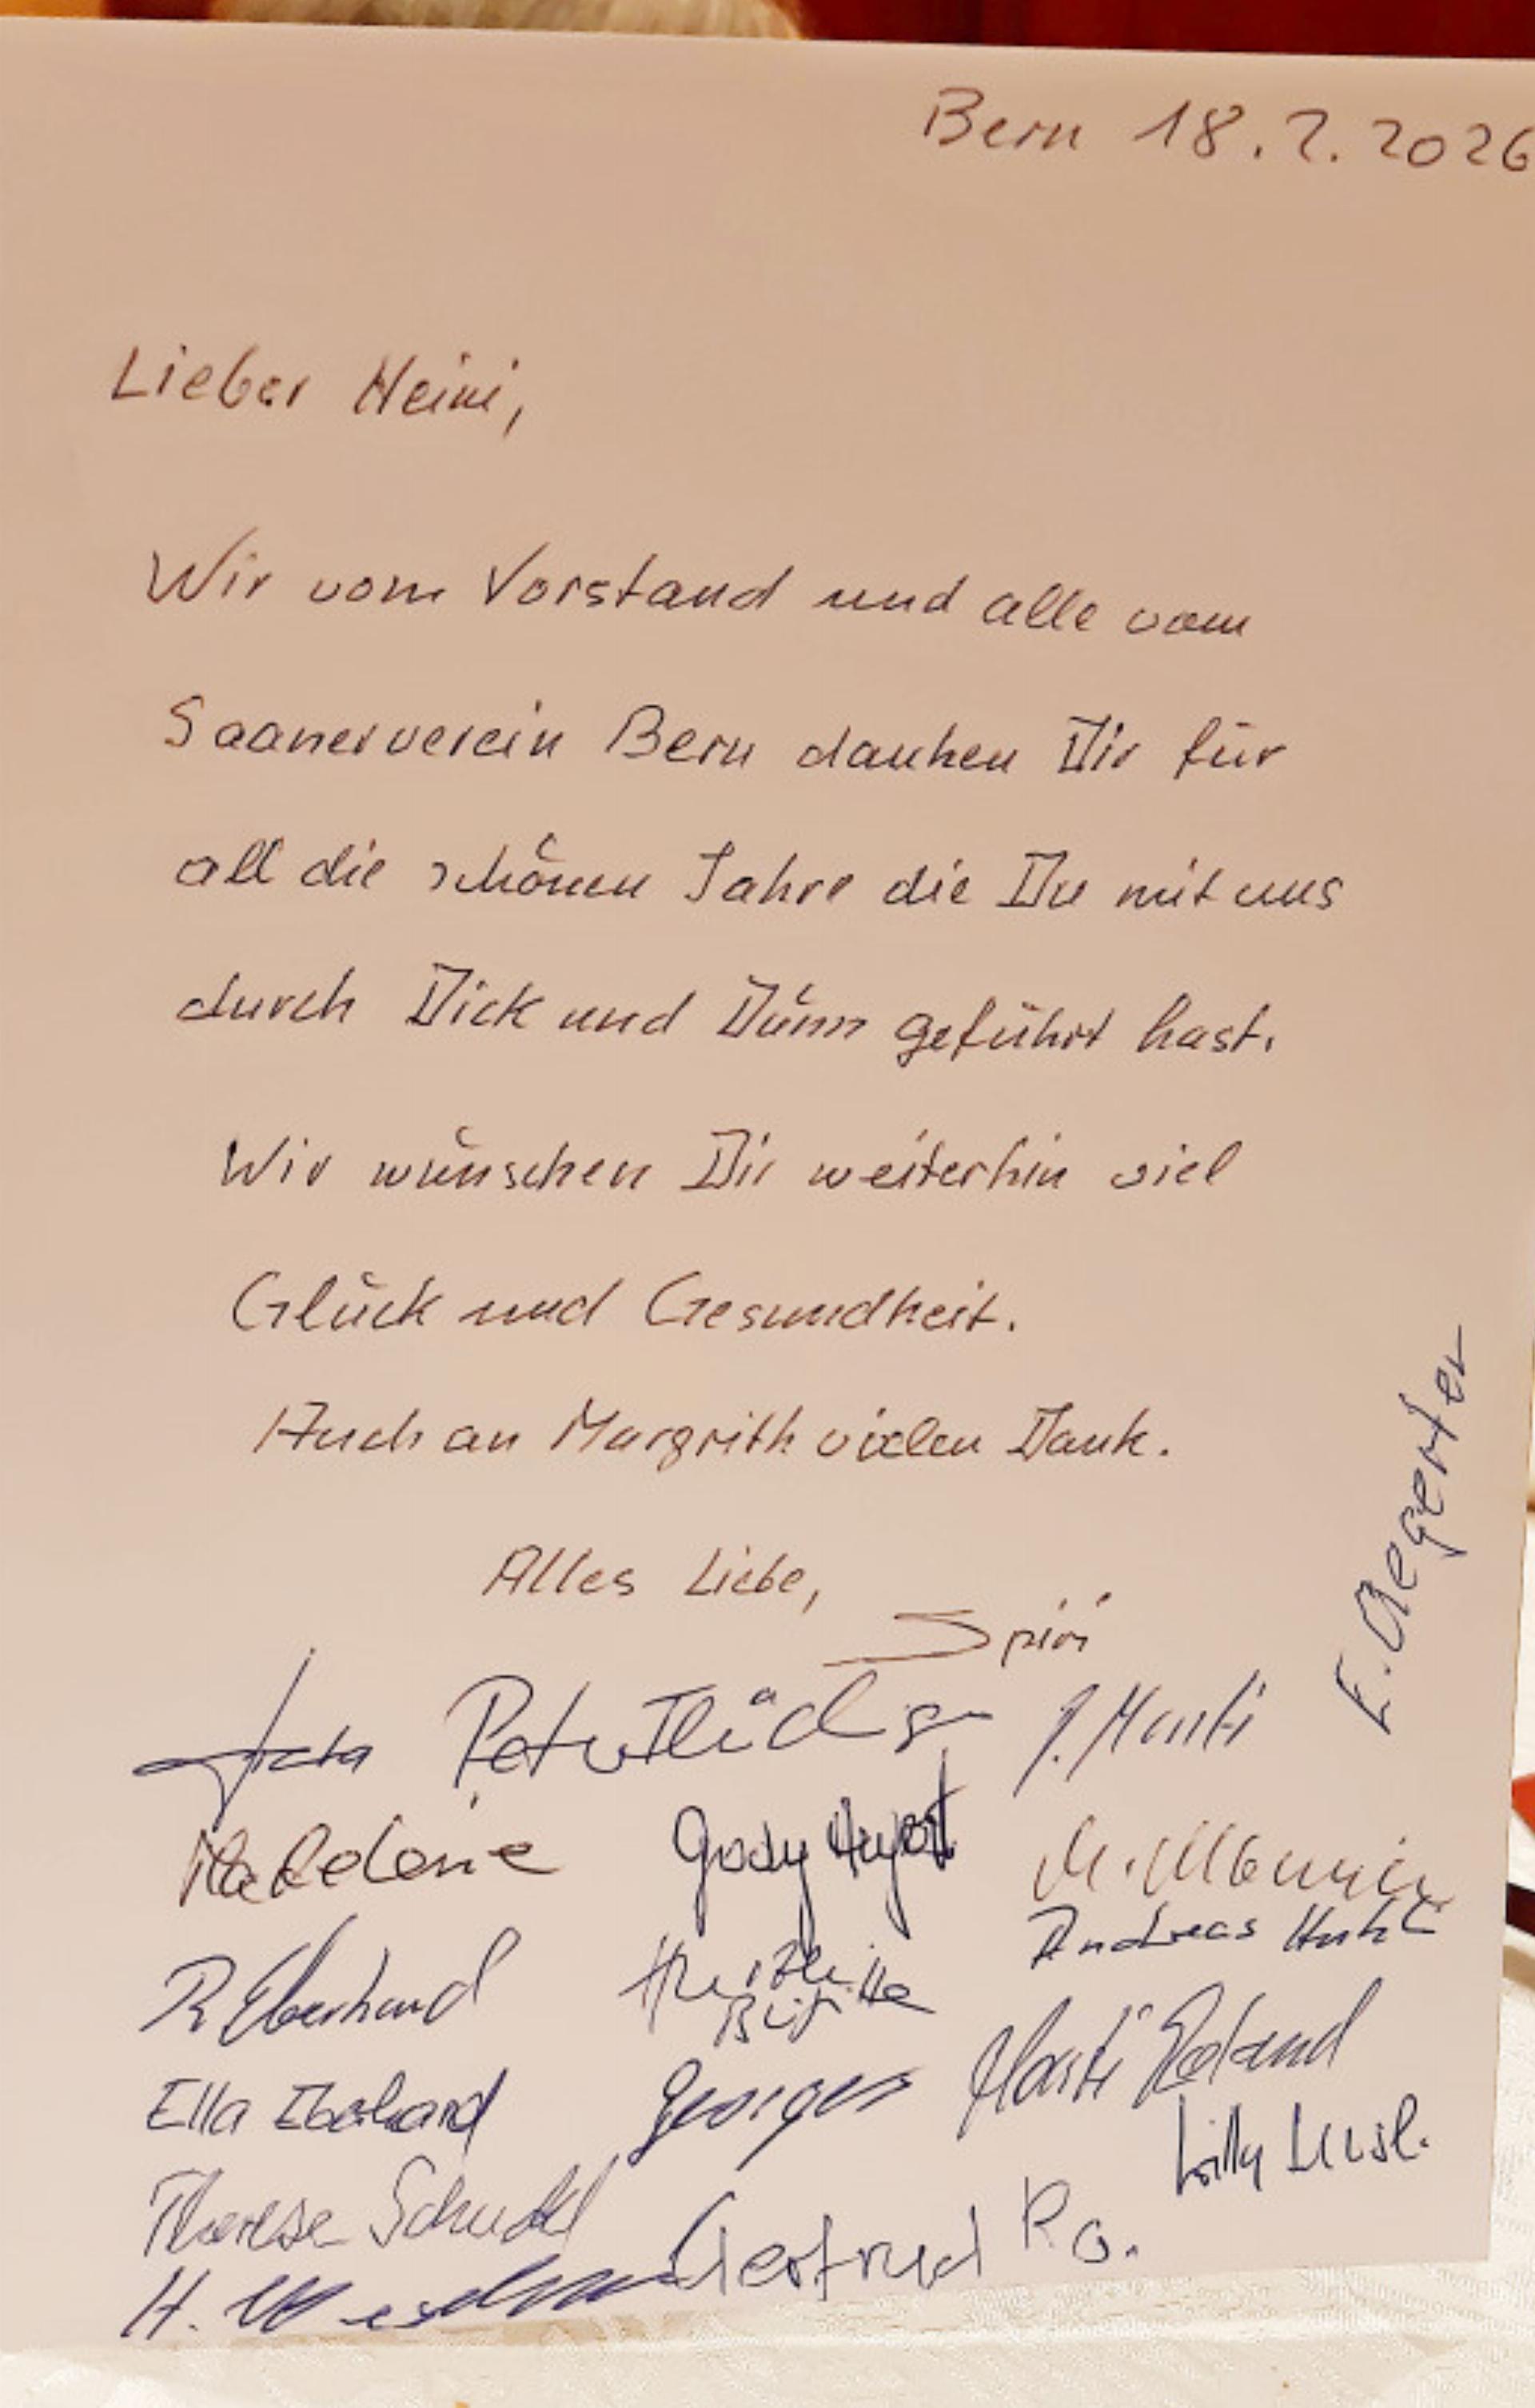 Bern 18.2.2026
Lieber Heini,
Wir vom Vorstand und alle vom
Saanerverein Bern danken Dir für
all die schönen Jahre die Du mit uns
durch Dick und Dünn geführt hast.
Wir wünschen Dir weiterhin viel
Glück und Gesundheit.
Auch an Margrith vielen Dank.
Alles Liebe,
Spiri
E. Aegerter
Peter
J. Marti
Madeleine
Gody
M.
Andreas
R Eberhard
Ella Eberhard
Georges
Marti Roland
Lilly
Therese
Gertrud Ro.
H.